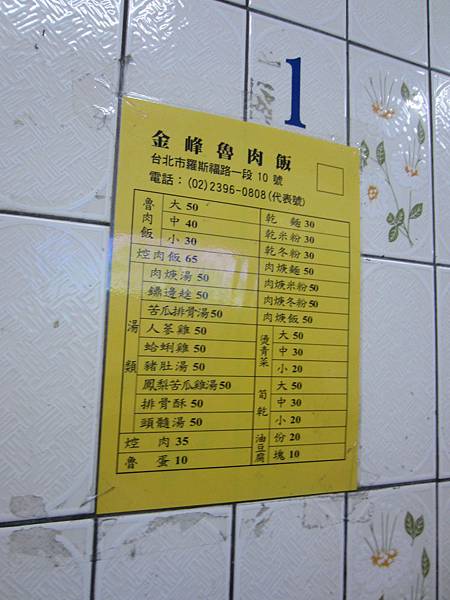 1
金峰魯肉飯
台北市羅斯福路一段 10 號
電話：(02)2396-0808(代表號)
魯肉飯
大 50
中 40
小 30
焢肉飯 65
湯類
肉焿湯 50
鏢邊趖 50
苦瓜排骨湯 50
人蔘雞 50
蛤蜊雞 50
豬肚湯 50
鳳梨苦瓜雞湯 50
排骨酥 50
頭髓湯 50
焢 肉 35
魯 蛋 10
乾 麵 30
乾米粉 30
乾冬粉 30
肉焿麵 50
肉焿米粉 50
肉焿冬粉 50
肉焿飯 50
燙青菜
大 50
中 30
小 20
筍乾
大 50
中 30
小 20
油豆腐
份 20
塊 10